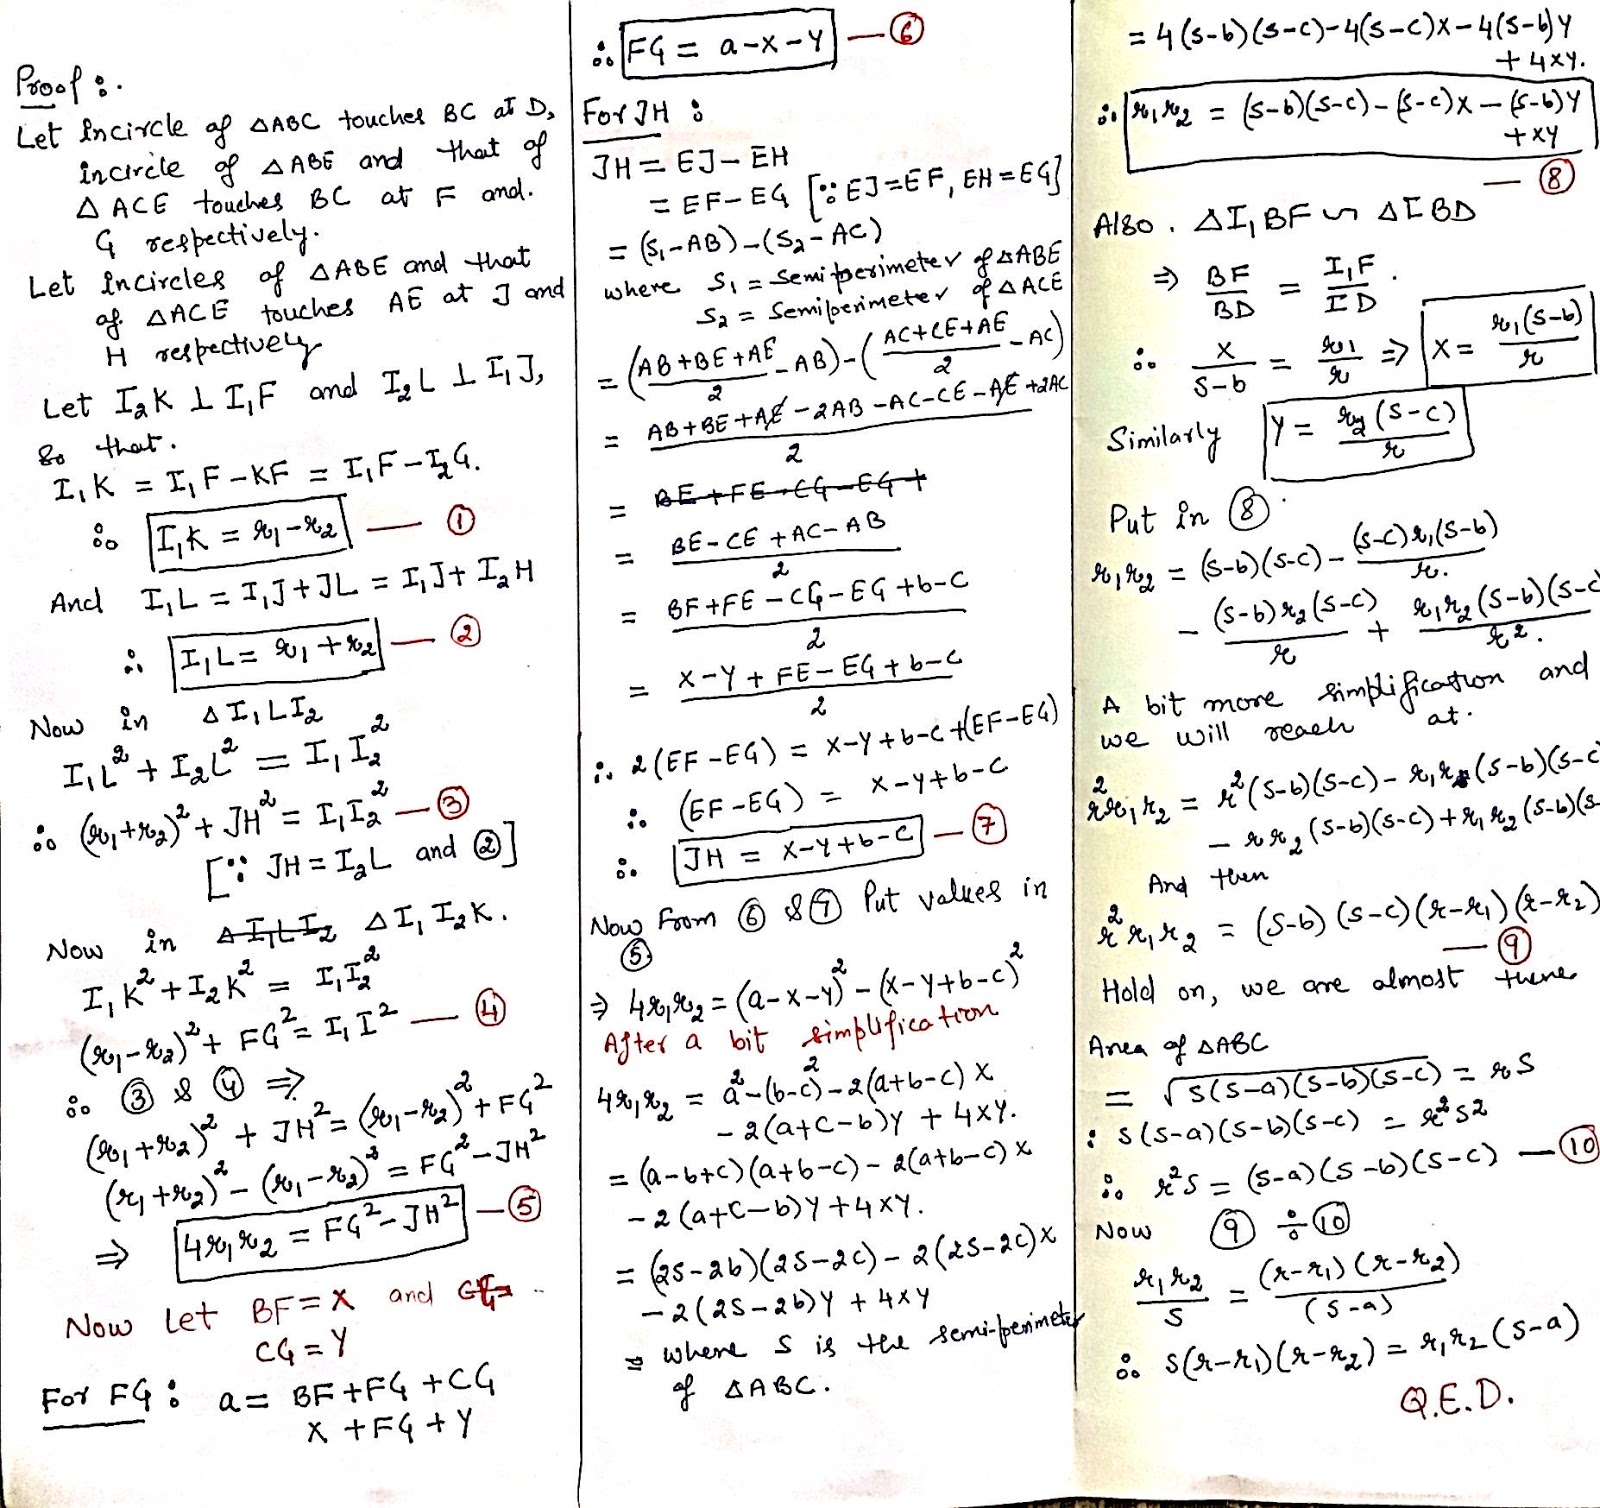 Proof :.
Let Incircle of △ABC touches BC at D,
incircle of △ABE and that of
△ACE touches BC at F and.
G respectively.
Let Incircles of △ABE and that
of △ACE touches AE at J and
H respectively
Let I₂K ⊥ I₁F and I₂L ⊥ I₁J,
So that.
I₁K = I₁F - KF = I₁F - I₂G.
∴ I₁K = r₁ - r₂ — ①
And I₁L = I₁J + JL = I₁J + I₂H
∴ I₁L = r₁ + r₂ — ②
Now in △I₁LI₂
I₁L² + I₂L² = I₁I₂²
∴ (r₁+r₂)² + JH² = I₁I₂² — ③
[∵ JH = I₂L and ②]
Now in △I₁LI₂ △I₁I₂K.
I₁K² + I₂K² = I₁I₂²
(r₁-r₂)² + FG² = I₁I² — ④
∴ ③ & ④ ⇒
(r₁+r₂)² + JH² = (r₁-r₂)² + FG²
(r₁+r₂)² - (r₁-r₂)² = FG² - JH²
⇒ 4r₁r₂ = FG² - JH² — ⑤
Now Let BF = x and
CG = y
For FG : a = BF + FG + CG
x + FG + y
∴ FG = a - x - y — ⑥
For JH :
JH = EJ - EH
= EF - EG [∵ EJ = EF, EH = EG]
= (S₁ - AB) - (S₂ - AC)
where S₁ = Semiperimeter of △ABE
S₂ = Semiperimeter of △ACE
= (AB+BE+AE/2 - AB) - (AC+CE+AE/2 - AC)
= AB+BE+AE-2AB-AC-CE-AE+2AC/2
= BE+FE-CG-EG+
= BE-CE+AC-AB/2
= BF+FE-CG-EG+b-c/2
= x-y+FE-EG+b-c/2
∴ 2(EF-EG) = x-y+b-c+(EF-EG)
∴ (EF-EG) = x-y+b-c
∴ JH = x-y+b-c — ⑦
Now From ⑥ & ⑦ Put values in
⑤
⇒ 4r₁r₂ = (a-x-y)² - (x-y+b-c)²
After a bit simplification
4r₁r₂ = a² - (b-c)² - 2(a+b-c)x
- 2(a+c-b)y + 4xy.
= (a-b+c)(a+b-c) - 2(a+b-c)x
- 2(a+c-b)y + 4xy.
= (2s-2b)(2s-2c) - 2(2s-2c)x
- 2(2s-2b)y + 4xy
where s is the semi-perimeter
of △ABC.
= 4(s-b)(s-c) - 4(s-c)x - 4(s-b)y
+ 4xy.
∴ r₁r₂ = (s-b)(s-c) - (s-c)x - (s-b)y
+ xy
— ⑧
Also. △I₁BF ∽ △IBD
⇒ BF/BD = I₁F/ID.
∴ x/s-b = r₁/r ⇒ x = r₁(s-b)/r
Similarly y = r₂(s-c)/r
Put in ⑧.
r₁r₂ = (s-b)(s-c) - (s-c)r₁(s-b)/r.
- (s-b)r₂(s-c)/r + r₁r₂(s-b)(s-c/r².
A bit more simplification and
we will reach at.
r²r₁r₂ = r²(s-b)(s-c) - r₁r(s-b)(s-c
- rr₂(s-b)(s-c) + r₁r₂(s-b)(s-
And then
r²r₁r₂ = (s-b)(s-c)(r-r₁)(r-r₂)
— ⑨
Hold on, we are almost there
Area of △ABC
= √s(s-a)(s-b)(s-c) = rs
: s(s-a)(s-b)(s-c) = r²s²
∴ r²s = (s-a)(s-b)(s-c) — ⑩
Now ⑨ ÷ ⑩
r₁r₂/s = (r-r₁)(r-r₂)/(s-a)
∴ s(r-r₁)(r-r₂) = r₁r₂(s-a)
Q.E.D.